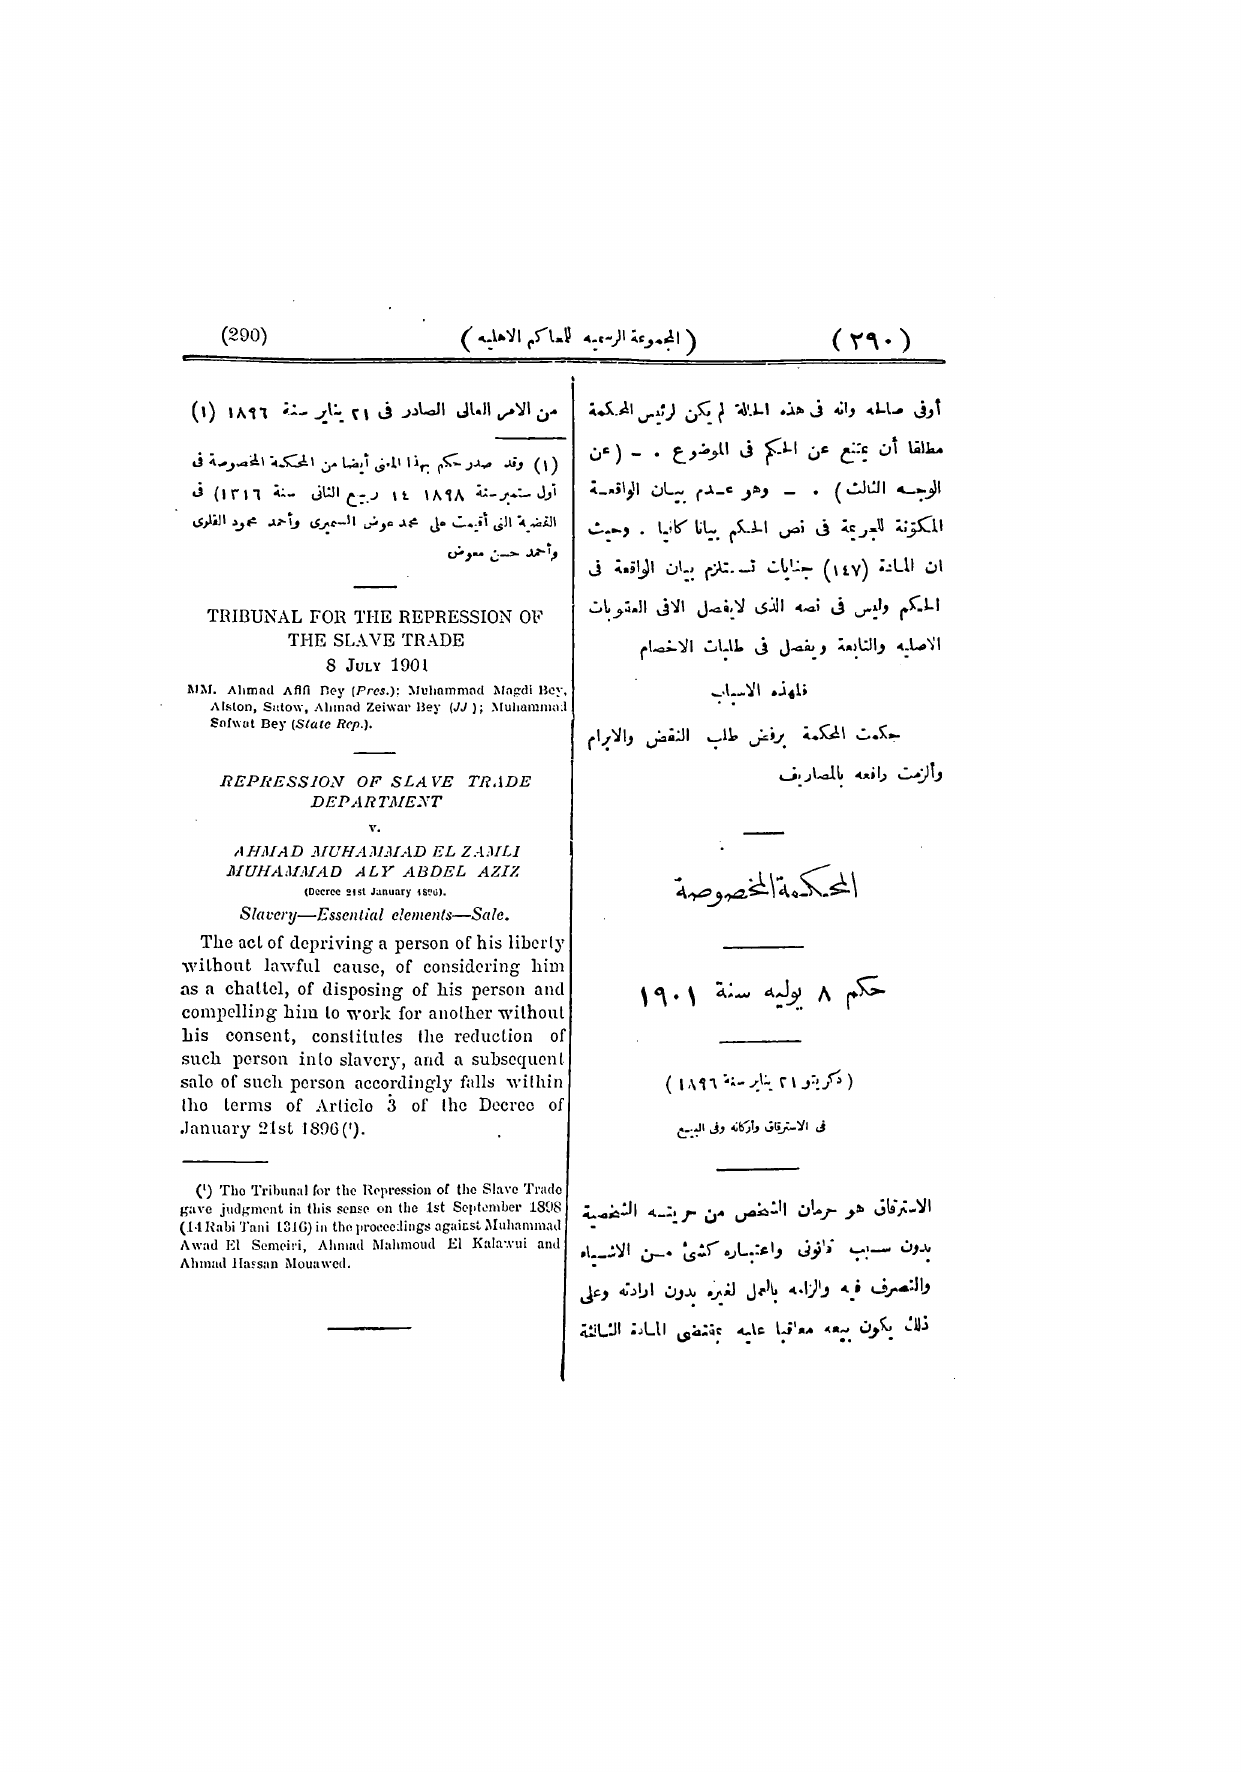 (٢٩٠) (المجموعة الرسميه للمحاكم الاهليه) (290)
أوفى صالحه وانه فى هذه الحالة لم يكن لرئيس المحكمة
مطلقا أن يمتنع عن الحكم فى الموضوع . — (عن
الوجه الثالث) . — وهو عدم بيان الواقعة
المكونة للجريمة فى نص الحكم بيانا كافيا . وحيث
ان المادة (١٤٧) جنايات تستلزم بيان الواقعة فى
الحكم وليس فى نصه الذى لايفصل الافى العقوبات
الاصليه والتابعة ويفصل فى طلبات الاخصام
فلهذه الاسباب
حكمت المحكمة برفض طلب النقض والابرام
وألزمت رافعه بالمصاريف
المحكمة المخصوصة
حكم ٨ يوليه سنة ١٩٠١
(دكريتو ٢١ يناير سنة ١٨٩٦)
فى الاسترقاق وأركانه وفى البيع
الاسترقاق هو حرمان الشخص من حريته الشخصية
بدون سبب قانونى واعتباره كشئ من الاشياء
والتصرف فيه والزامه بالعمل لغيره بدون ارادته وعلى
ذلك يكون بيعه معاقبا عليه بمقتضى المادة الثالثة
من الامر العالى الصادر فى ٢١ يناير سنة ١٨٩٦ (١)
(١) وقد صدر حكم بهذا المعنى أيضا من المحكمة المخصوصة فى
أول ستمبر سنة ١٨٩٨ ١٤ ربيع الثانى سنة ١٣١٦) فى
القضية التى أقيمت على محمد عوض السميرى وأحمد محمود القلاوى
وأحمد حسن معوض
TRIBUNAL FOR THE REPRESSION OF
THE SLAVE TRADE
8 JULY 1901
MM. Ahmad Afifi Bey (Pres.): Muhammad Magdi Bey,
Alston, Satow, Ahmad Zeiwar Bey (JJ); Muhammad
Safwat Bey (State Rep.).
REPRESSION OF SLAVE TRADE
DEPARTMENT
v.
AHMAD MUHAMMAD EL ZAMLI
MUHAMMAD ALY ABDEL AZIZ
(Decree 21st January 1896).
Slavery—Essential elements—Sale.
The act of depriving a person of his liberty
without lawful cause, of considering him
as a chattel, of disposing of his person and
compelling him to work for another without
his consent, constitutes the reduction of
such person into slavery, and a subsequent
sale of such person accordingly falls within
the terms of Article 3 of the Decree of
January 21st 1896(¹).
(¹) The Tribunal for the Repression of the Slave Trade
gave judgment in this sense on the 1st September 1898
(14 Rabi Tani 1316) in the proceedings against Muhammad
Awad El Semeiri, Ahmad Mahmoud El Kalawui and
Ahmad Hassan Mouawed.